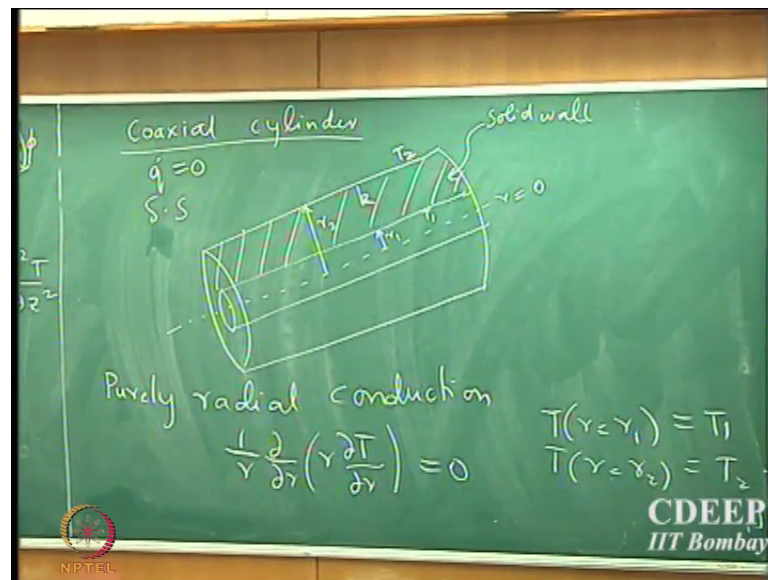 Coaxial cylinder
q̇ = 0
S.S
solid wall
T₂
k
r₂
r₁
T₁
r = 0
²T
∂z²
Purely radial conduction
1/r ∂/∂r (r ∂T/∂r) = 0
T(r = r₁) = T₁
T(r = r₂) = T₂
CDEEP
IIT Bombay
NPTEL